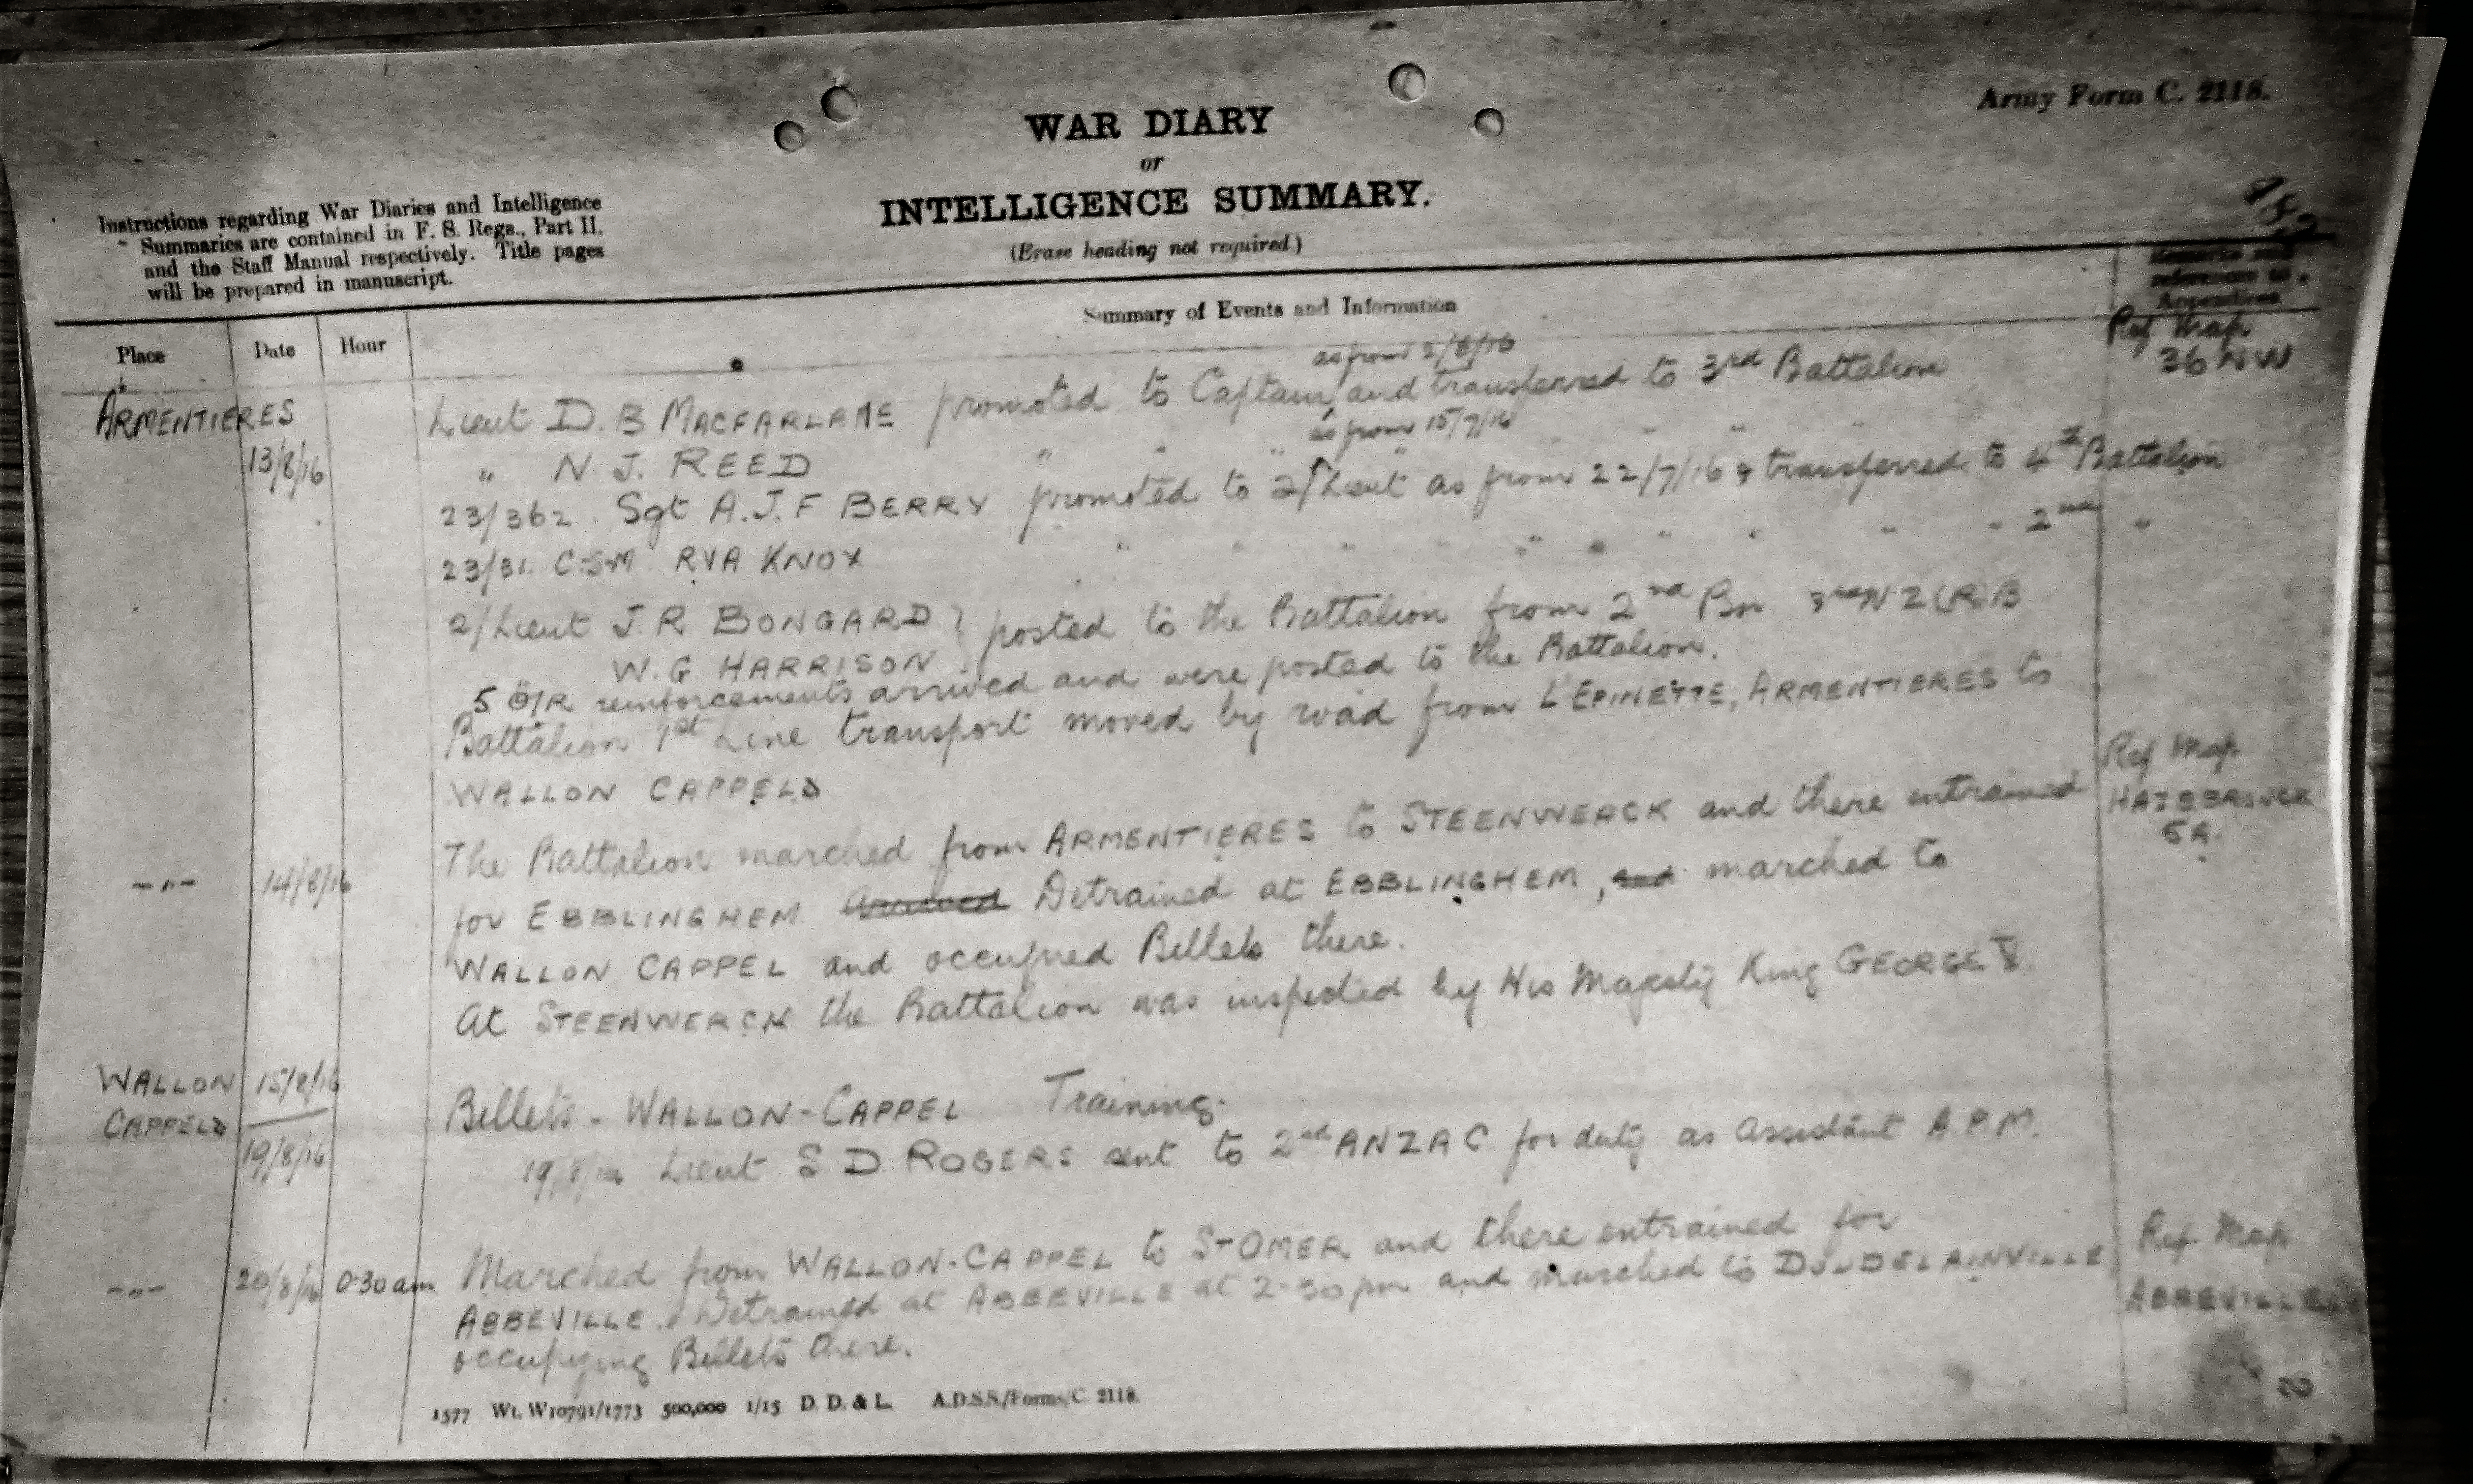 Army Form C. 2118.
WAR DIARY
or
INTELLIGENCE SUMMARY.
(Erase heading not required.)
Instructions regarding War Diaries and Intelligence
Summaries are contained in F. S. Regs., Part II.
and the Staff Manual respectively. Title pages
will be prepared in manuscript.
Summary of Events and Information
Remarks and
references to
Appendices
Place Date Hour
Ref Map
36 NW
as from 5/8/16
ARMENTIERES Lieut D. B MACFARLANE promoted to Captain, and transferred to 3rd Battalion
as from 15/7/16
13/8/16 " N J. REED " " " " " " "
23/362. Sgt A.J.F BERRY promoted to 2/Lieut as from 22/7/16 & transferred to 4th Battalion
23/31. C.S.M RVA KNOX " " " " " " " " " " 2nd "
2/Lieut J.R BONGARD } posted to the Battalion from 2nd Bn 3rd NZ(R)B
W.G HARRISON
5 O/R reinforcements arrived and were posted to the Battalion.
Battalion 1st Line transport moved by road from L'EPINETTE, ARMENTIERES to
WALLON CAPPELL
Ref Map
HAZEBROUCK
5A.
-"- 14/8/16 The Battalion marched from ARMENTIERES to STEENWERCK and there entrained
for EBBLINGHEM. Arrived Detrained at EBBLINGHEM, and marched to
WALLON CAPPEL and occupied Billets there.
At STEENWERCK the Battalion was inspected by His Majesty King GEORGE V.
WALLON CAPPELL 15/8/16
19/8/16 Billets - WALLON-CAPPEL Training.
19/8/16 Lieut S D ROGERS sent to 2nd ANZAC for duty as Assistant A.P.M.
-"- 20/8/16 0.30 am Marched from WALLON-CAPPEL to ST OMER and there entrained for
ABBEVILLE. Detrained at ABBEVILLE at 2-30pm and marched to DOUDELAINVILLE
occupying Billets there.
Ref Map
ABBEVILLE
1577 Wt. W10791/1773 500,000 1/15 D. D. & L. A.D.S.S./Forms/C. 2118.